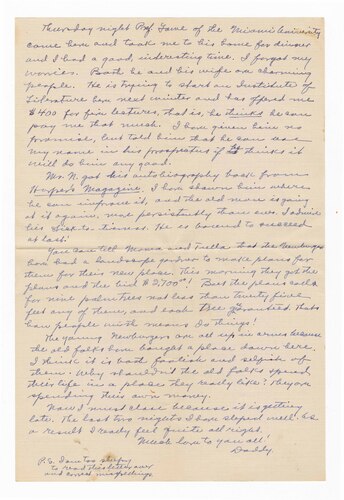 Thursday night Prof. Lowe of the Miami University
came here and took me to his home for dinner
and I had a good, interesting time. I forgot my
worries. Both he and his wife are charming
people. He is trying to start an Institute of
Literature here next winter and has offered me
$400 for five lectures, that is, he thinks he can
pay me that much. I have given him no
promise, but told him that he can use
my name in his prospectus if he thinks it
will do him any good.
Mr. N. got his autobiography back from
Harper's Magazine. I have shown him where
he can improve it, and the old man is going
at it again, more persistently than ever. I admire
his stick-to-it-iveness. He is bound to succeed
at last.
You can tell Mama and that the
have had a landscape gardener to make plans for
them for their new place. This morning they got the
plans and the bid $2,700! But the plans calls
for nine palm trees not less than twenty five
feet any of them, and each tree guaranteed. That's
how people with means do things!
The young are up in arms because
the old folks have bought a place down here.
I think it is both foolish and selfish of
them. Why shouldn't the old folks spend
their life in a place they really like? They are
spending their own money.
Now I must close because it is getting
late. The last two nights I have slept well. As
a result I really feel quite all right.
Much love to you all!
Daddy
P.S. I am too sleepy
to read this letter over
and correct misspellings.